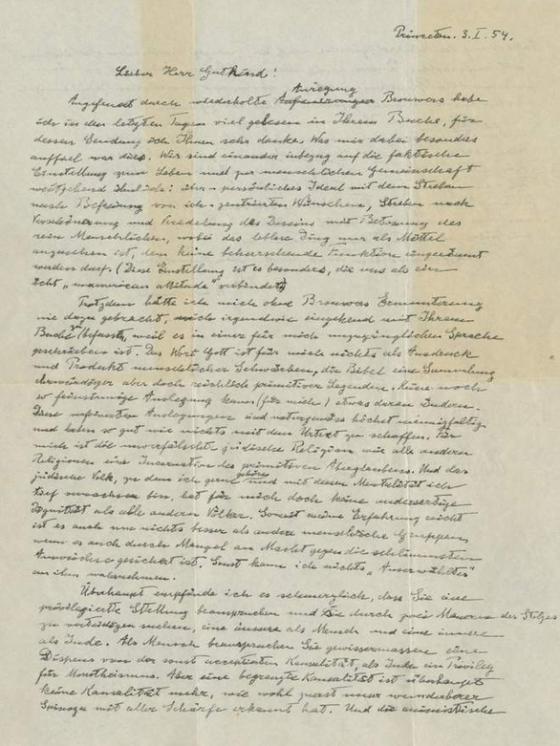 Princeton. 3. I. 54.
Lieber Herr Gutkind!
Anregung
Angefeuert durch wiederholte Brouwers habe
ich in den letzten Tagen viel gelesen in Ihrem Buche, für
dessen Sendung ich Ihnen sehr danke. Was mir dabei besonders
auffiel war dies. Wir sind einander inbezug auf die faktische
Einstellung zum Leben und zur menschlichen Gemeinschaft
weitgehend ähnlich: über-persönliches Ideal mit dem Streben
nach Befreiung von ich-zentrierten Wünschen, Streben nach
Verschönerung und Veredelung des Daseins mit Betonung des
rein Menschlichen, wobei das leblose Ding nur als Mittel
anzusehen ist, dem keine beherrschende Funktion eingeräumt
werden darf. (Diese Einstellung ist es besonders, die uns als ein
echt "unamerican attitude" verbindet)
Trotzdem hätte ich mich ohne Brouwers Ermunterung
nie dazu gebracht, mich irgendwie eingehend mit Ihrem
Buche zu befassen, weil es in einer für mich unzugänglichen Sprache
geschrieben ist. Das Wort Gott ist für mich nichts als Ausdruck
und Produkt menschlicher Schwächen, die Bibel eine Sammlung
ehrwürdiger aber doch reichlich primitiver Legenden. Keine noch
so feinsinnige Auslegung kann (für mich) etwas daran ändern.
Diese verfeinerten Auslegungen sind naturgemäss höchst mannigfaltig
und haben so gut wie nichts mit dem Urtext zu schaffen. Für
mich ist die unverfälschte jüdische Religion wie alle anderen
Religionen eine Incarnation des primitiven Aberglaubens. Und das
jüdische Volk, zu dem ich gerne gehöre und mit dessen Mentalität ich
tief verwachsen bin, hat für mich doch keine andersartige
Dignität als alle anderen Völker. Soweit meine Erfahrung reicht
ist es auch um nichts besser als andere menschliche Gruppen
wenn es auch durch Mangel an Macht gegen die schlimmsten
Auswüchse gesichert ist. Sonst kann ich nichts "Auserwähltes"
an ihm wahrnehmen.
Überhaupt empfinde ich es schmerzlich, dass Sie eine
privilegierte Stellung beanspruchen und sie durch zwei Mauern des Stolzes
zu verteidigen suchen, eine äussere als Mensch und eine innere
als Jude. Als Mensch beanspruchen Sie gewissermassen einen
Dispens von der sonst acceptierten Kausalität, als Jude ein Privileg
für Monotheismus. Aber eine begrenzte Kausalität ist überhaupt
keine Kausalität mehr, wie wohl zuerst unser wunderbarer
Spinoza mit aller Schärfe erkannt hat. Und die animistische